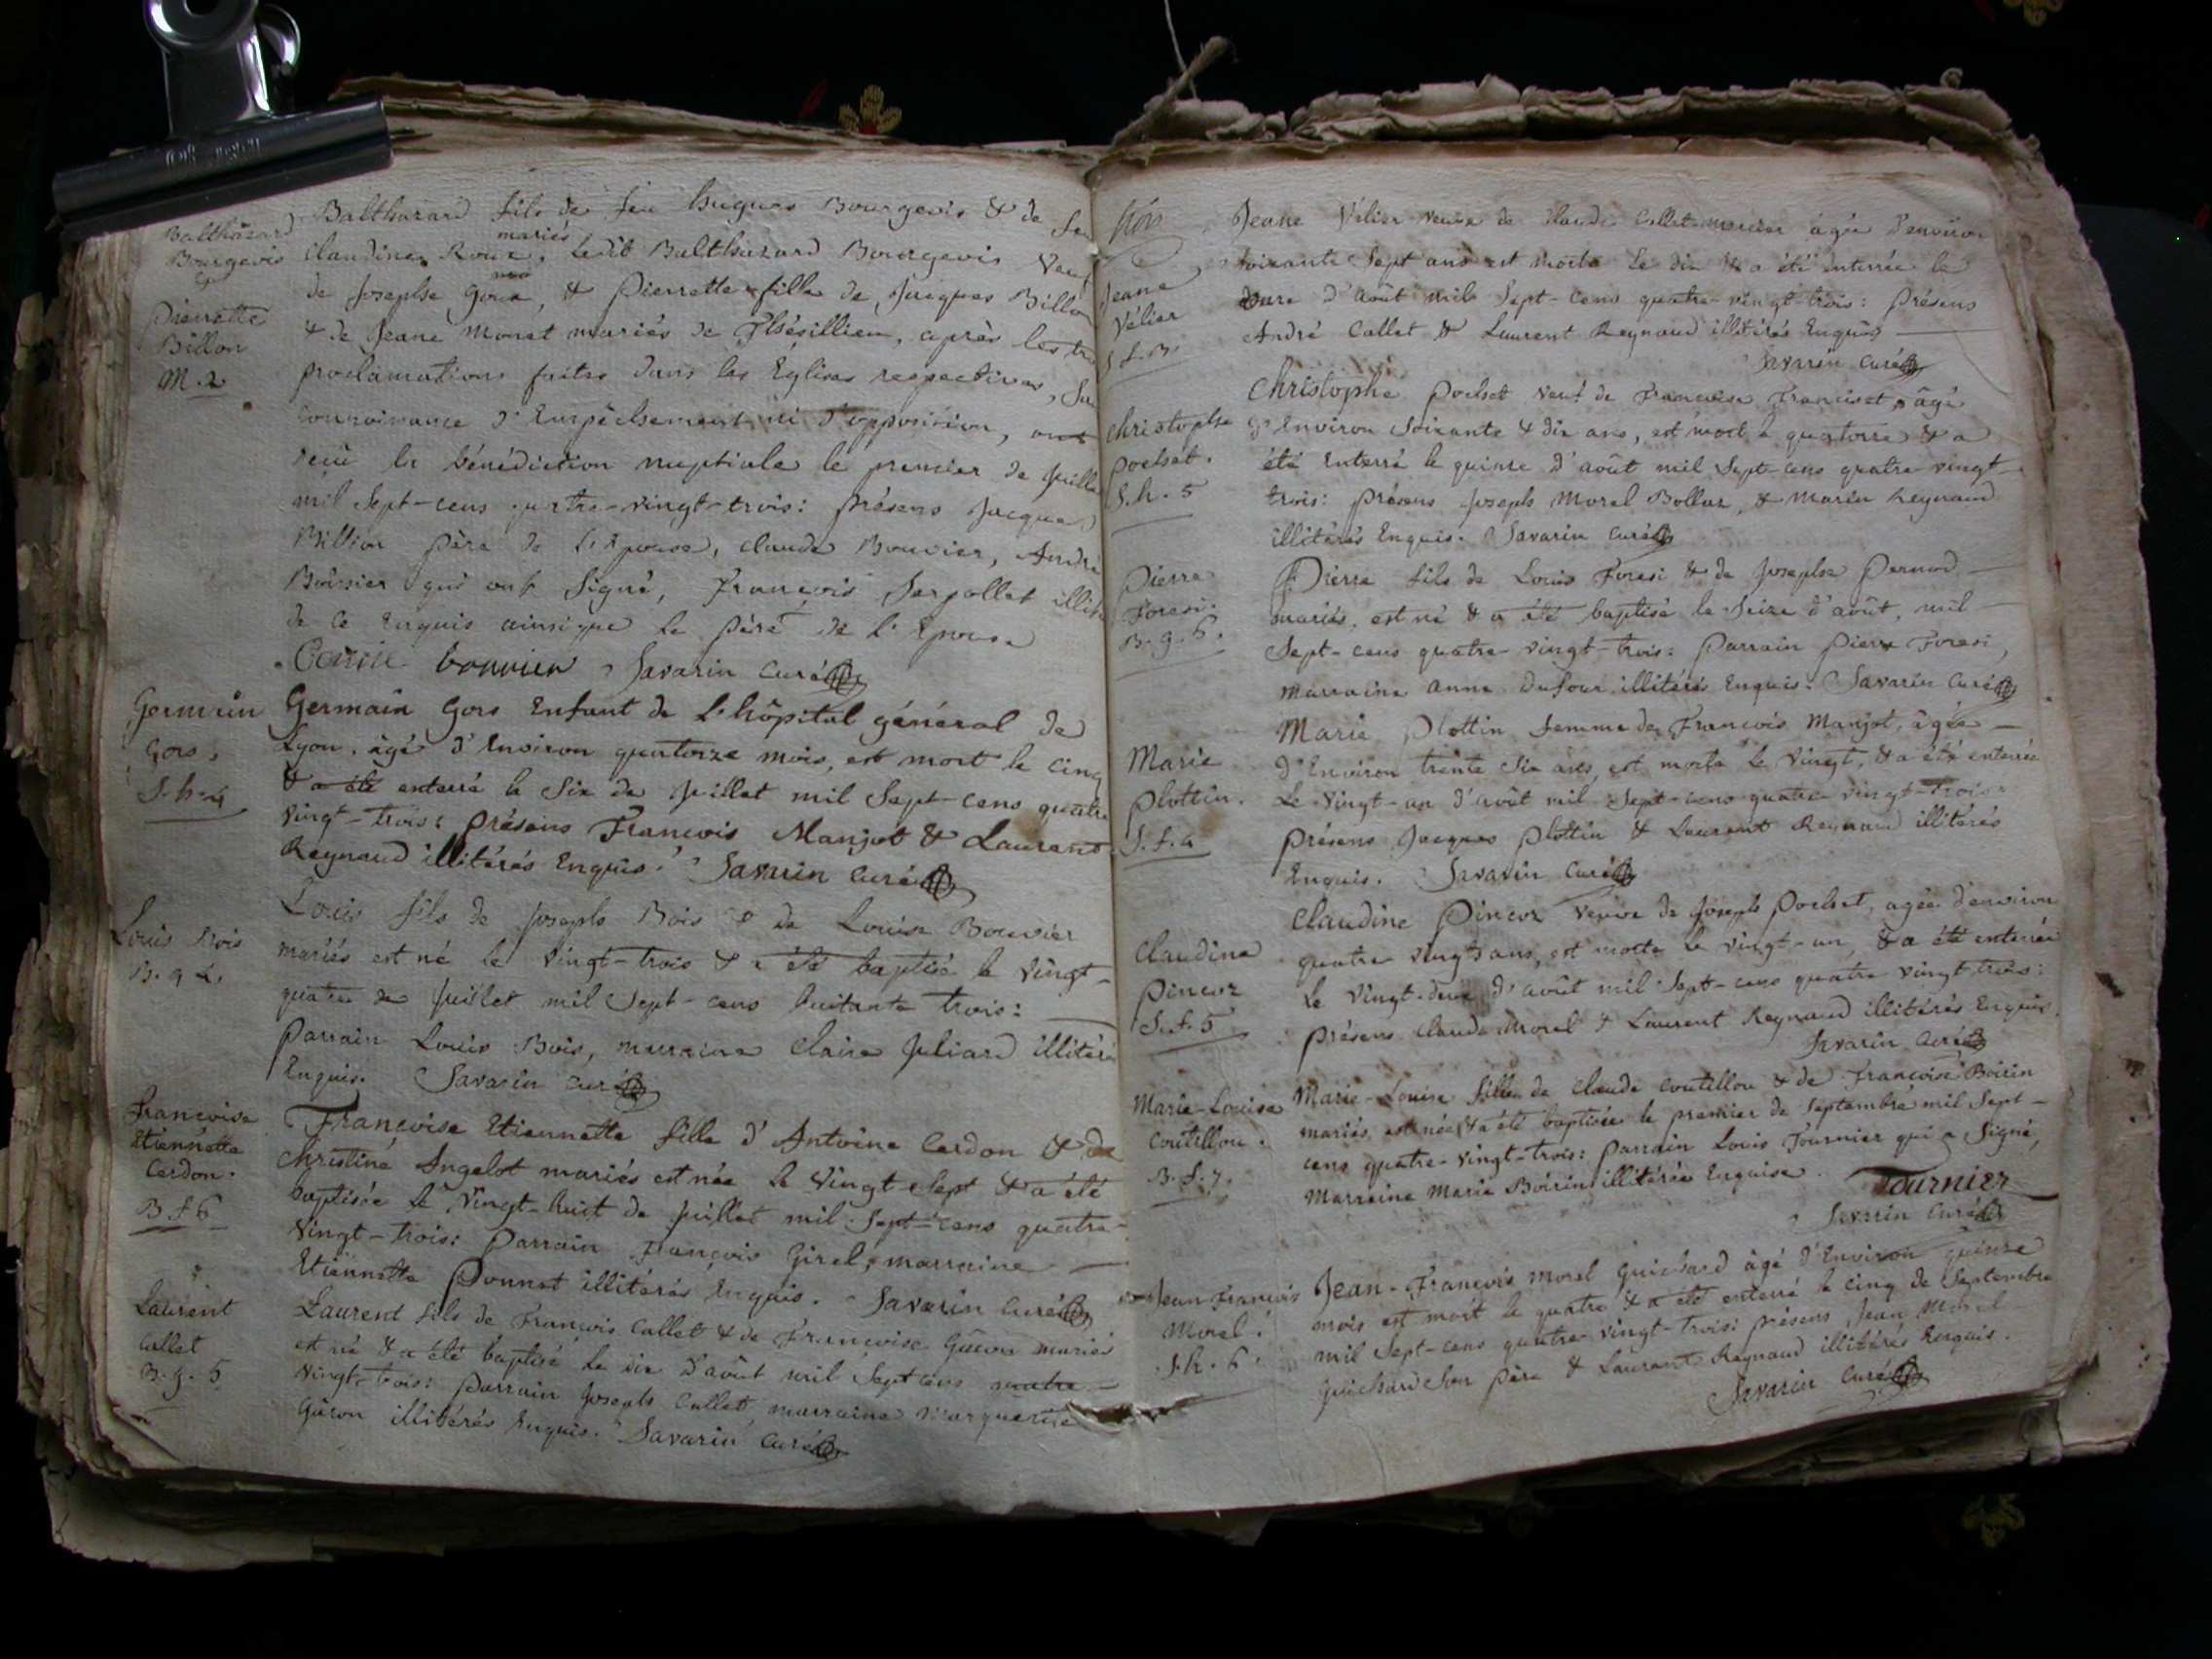 Balthazard
Bourgevis
&
Pierrette
Billon
M. 2
Balthazard fils de feu hugues Bourgevis & de feu
Claudine Roux, mariés ledit Balthazard Bourgevis veuf
de Josephe & Pierrette fille de Jacques Billon
& de Jeane Monet mariés de Thésillieu, après les
proclamations faites dans les Eglises respectives,
connoissance d'Empêchement ni d'opposition, ont
reçu la bénédiction nuptiale le premier de Juille
mil Sept-cens quatre-vingt-trois: présens Jacques
Billion père de L'Epouse, claude Bouvier, André
qui ont Signé, François Serpollet
de ce Enquis ainsi que le père de L'Epouse
bouvier Savarin curé
Germain
Gors,
S. h. 4
Germain Gors Enfant de L'hôpital général de
Lyon, âgé d'Environ quatorze mois, est mort le cinq
& a été enterré le Six de Juillet mil Sept-cens quatre
vingt-trois: présens François Manjot & Laurent
Reynaud illitérés Enquis. Savarin curé
Louis Bois
B. g. 4.
Louis fils de Joseph Bois & de Louise Bouvier
mariés est né le vingt-trois & a été baptisé le vingt-
quatre de Juillet mil Sept-cens huitante trois:
Parrain Louis Bois, marraine Claire Juliard
Enquis. Savarin curé
françoise
Etiennette
Cerdon.
B f 6
Françoise Etiennette fille d'Antoine Cerdon & de
Christine Angelot mariés est née le vingt-Sept & a été
baptisée le vingt-huit de Juillet mil Sept-cens quatre-
vingt-trois: Parrain François Girel, marraine
Etiennette Ponnet illitérés Enquis. Savarin curé
Laurent
Callet
B. g. 5
Laurent fils de François Callet & de Françoise Guron mariés
est né & a été baptisé le dix d'août mil Sept cens quatre
vingt-trois: Parrain Joseph Callet, marraine Marguerite
Guron illitérés Enquis. Savarin curé
Jeane
Vélier
S. f. 3.
Jeane Vélier veuve de Claude Callet mercier âgée d'environ
Soixante Sept ans est morte le dix & a été enterrée le
onze d'août mil Sept-cens quatre-vingt-trois: présens
André Callet & Laurent Reynaud illitérés Enquis
Savarin curé
christophe
pochet.
S. h. 5
Christophe pochet veuf de Françoise Franciset, âgé
d'Environ Soixante & dix ans, est mort le quatorze & a
été Enterré le quinze d'août mil Sept-cens quatre vingt-
trois: présens Joseph Morel Bollaz, & Marin Reynaud
illitérés Enquis. Savarin curé
Pierre
Foresi.
B. g. 6.
Pierre fils de Louis Foresi & de Josephe Pernod
mariés, est né & a été baptisé le Seize d'août, mil
Sept-cens quatre vingt-trois: Parrain Pierre Foresi,
marraine anne dufour illitérés Enquis. Savarin curé
Marie
plottin.
S. f. 4
Marie Plottin femme de François Manjot, âgée
d'Environ trente six ans, est morte le vingt, & a été enterrée
le vingt-un d'août mil Sept-cens quatre vingt-trois:
présens Jacques plottin & Laurent Reynaud illitérés
Enquis. Savarin curé
Claudine
pincoz
S. f. 5
Claudine Pincoz veuve de Joseph pochet, agée d'environ
quatre vingts ans, est morte le vingt-un, & a été enterrée
le vingt-deux d'août mil Sept-cens quatre vingt trois:
présens Claude Morel & Laurent Reynaud illitérés Enquis.
Savarin curé
Marie-Louise
Coutillou.
B. f. 7.
Marie-Louise fille de Claude Coutillou & de Françoise Boirin
mariés est née & a été baptisée le premier de Septembre mil Sept-
cens quatre-vingt-trois: Parrain Louis Fournier qui a Signé,
Marraine Marie Boirin illitérée Enquise.
Fournier
Savarin curé
Jean François
Morel.
S. h. 6.
Jean-François morel Guichard âgé d'Environ quinze
mois est mort le quatre & a été enterré le cinq de Septembre
mil Sept-cens quatre vingt-trois: présens Jean Morel
Guichard Son Père & Laurent Reynaud illitérés Enquis.
Savarin curé